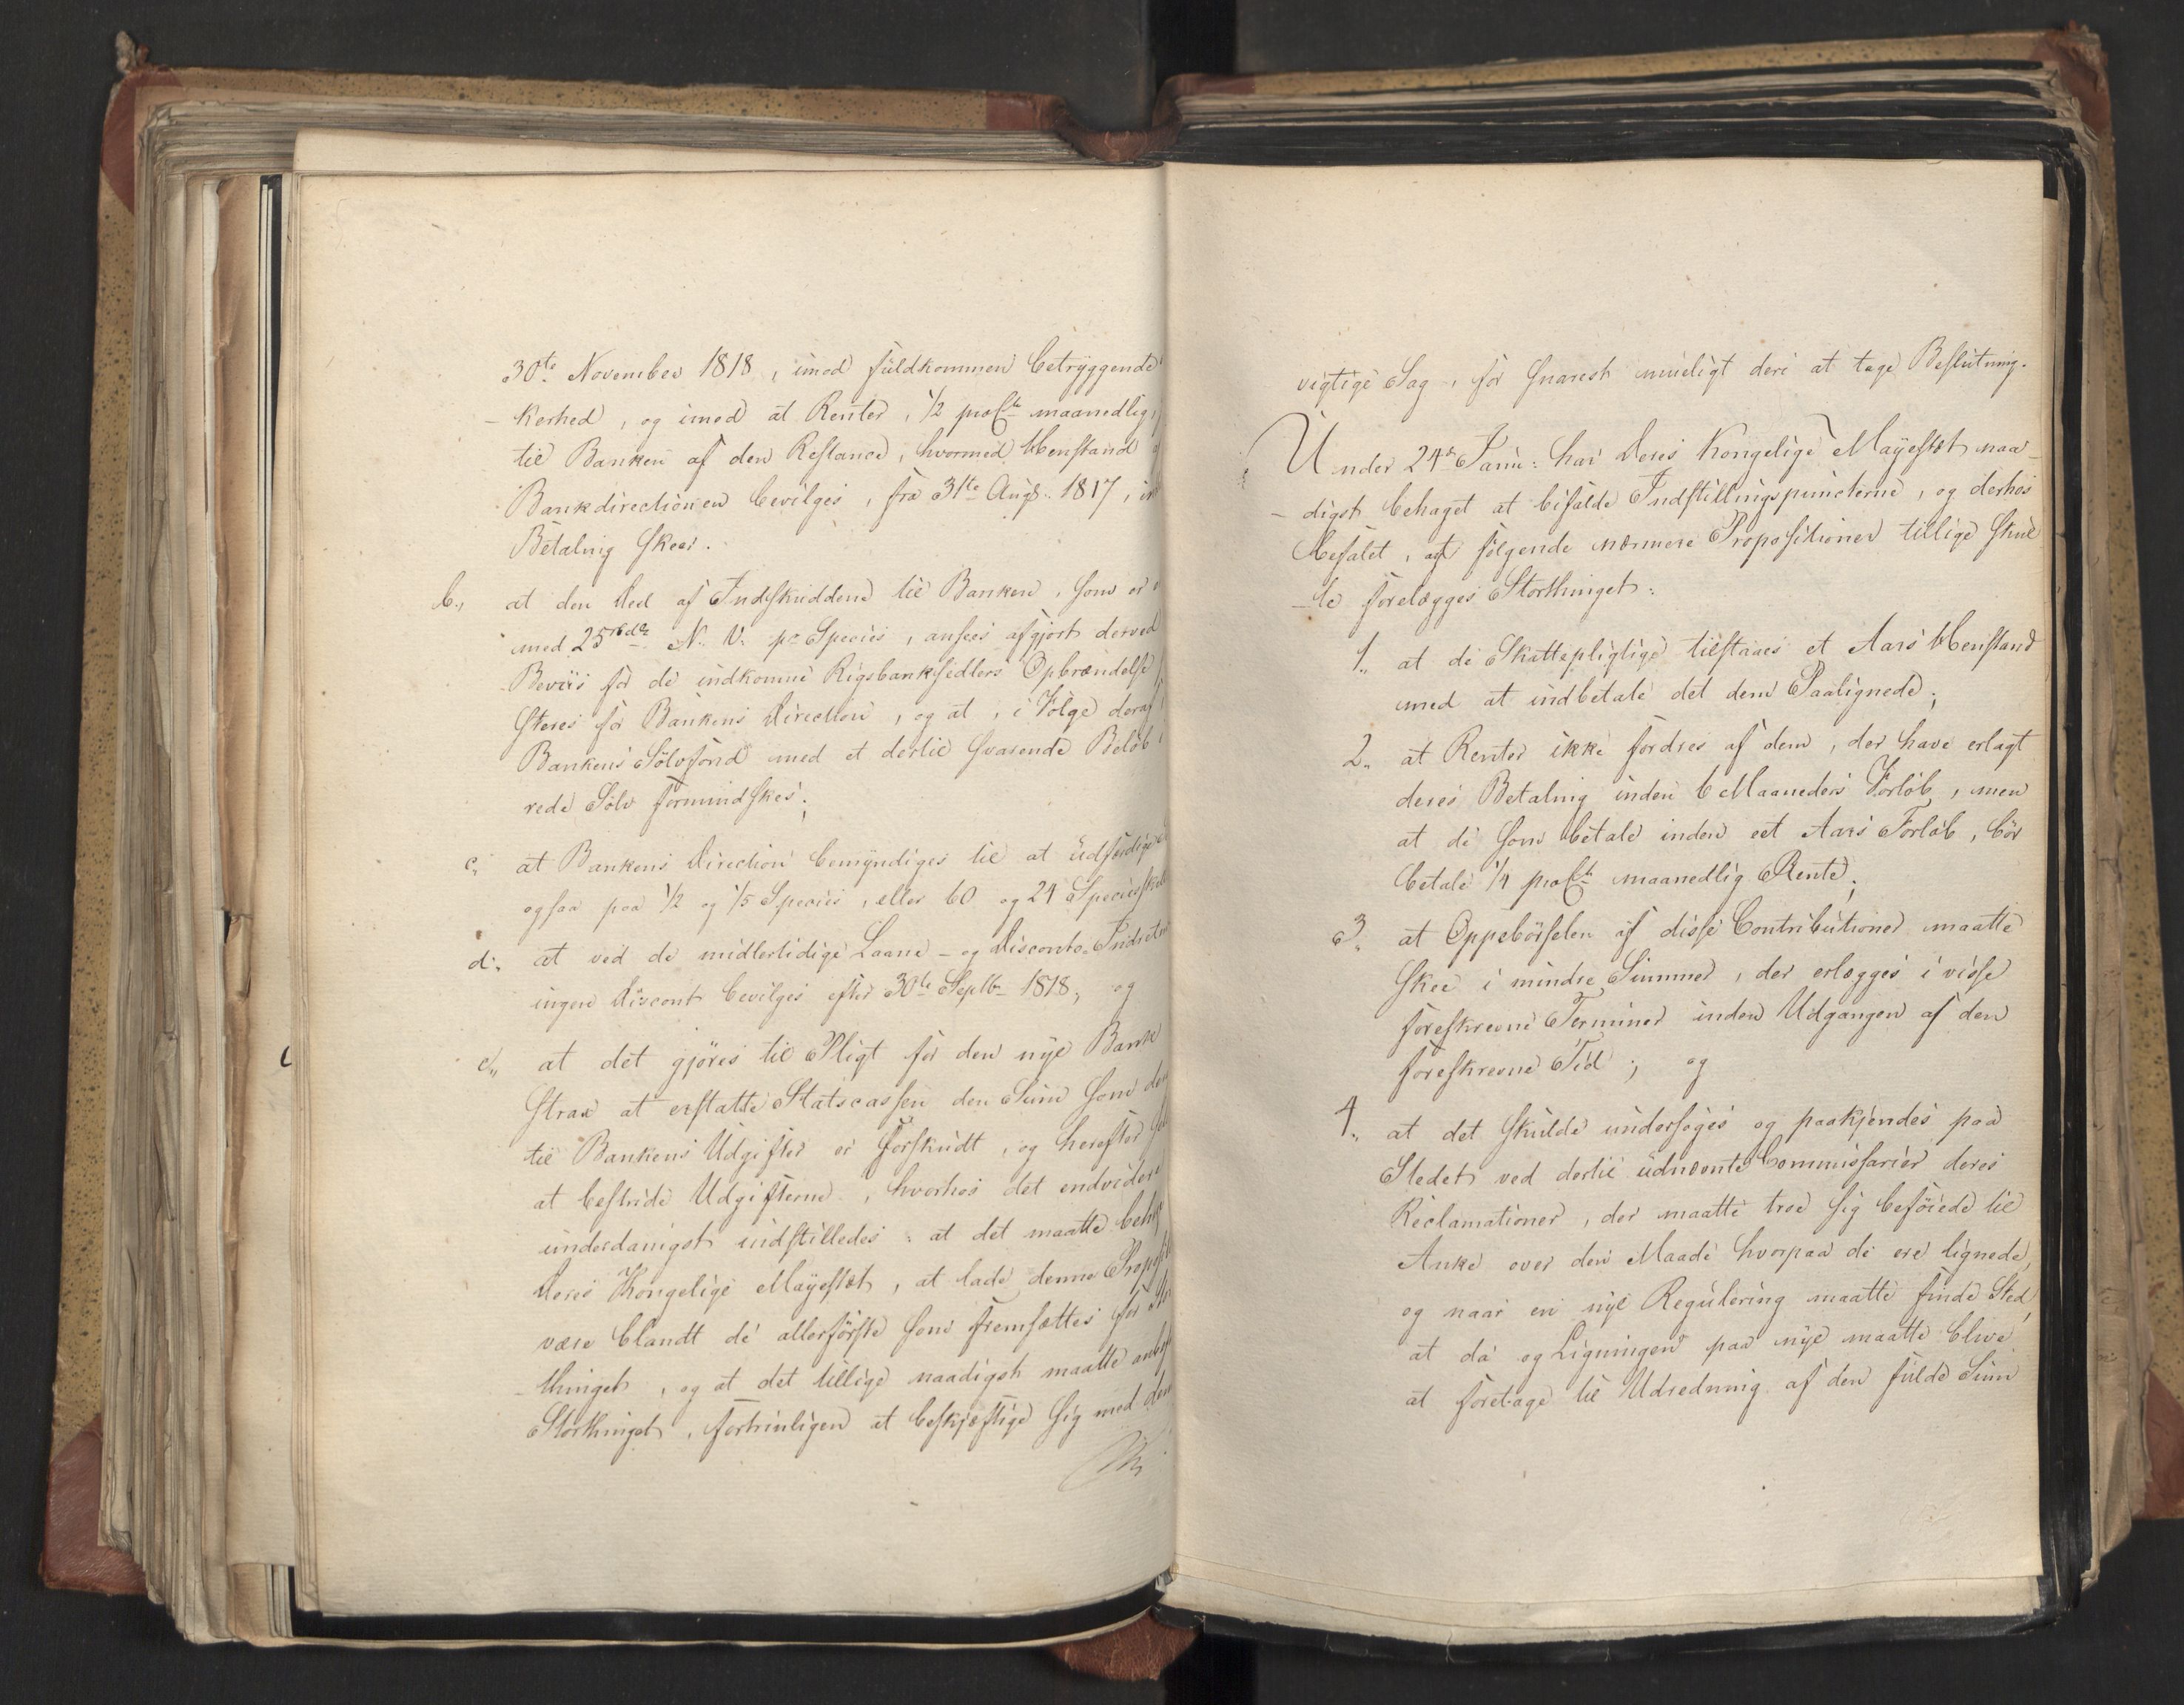 30te November 1818, imod fuldkommen betryggende
-kerhed, og imod at Renter, 1/2 proCt maanedlig,
til Banken af den Restance, hvormed Henstand
Bankdirectionen bevilges, fra 31te Augs. 1817,
Betaling skeer.
b., at den Deel af Indskuddene til Banken, som er
med 25 rbdlr N. V. pr Species, ansees afgjort derved
Beviis for de indkomne Rigsbanksedlers Opbrændelse
steres for Bankens Direction, og at, i Følge deraf
Bankens Sölvfond med et dertil svarende Beløb i
rede Sølv formindskes;
c., at Bankens Direction bemyndiges til at udfærdige
ogsaa paa 1/2 og 1/5 Species, eller 60 og 24 Speciesskill
d., at ved de midlertidige Laane- og Disconto-Indretn
ingen Discont bevilges efter 30te Septbr 1818; og
e., at det gjöres til Pligt for den nye Bank
strax at erstatte Statscassen den Sum som den
til Bankens Udgifter er forskudt, og herefter selv
at bestride Udgifterne, hvorhos det endvidere
underdanigst indstilledes: at det maatte behag
Deres Kongelige Mayestæt, at lade denne Proposit
være blandt de allerførste som fremsættes for Stor
-thinget, og at det tillige naadigst maatte anbef
Storthinget, fortrinligen at beskjæftige sig med den
vigtige Sag, for snarest mueligt deri at tage Beslutning.
Under 24de Janu: har Deres Kongelige Mayestæt naa-
-digst behaget at bifalde Indstillingspuncterne, og derhos
befalet, at følgende nærmere Propositioner tillige skul
-le forelægges Storthinget:
1., at de Skattepligtige tilstaaes et Aars Henstand
med at indbetale det dem Paalignede;
2., at Renter ikke fordres af dem, der have erlagt
deres Betaling inden 6 Maaneders Forløb, men
at de som betale inden eet Aars Forløb, bør
betale 1/4 proCt maanedlig Rente;
3., at Oppebörselen af disse Contributioner maatte
skee i mindre Summer, der erlægges i visse
foreskrevne Terminer inden Udgangen af den
foreskrevne Tid; og
4., at det skulde undersøges og paakjendes paa
Stedet ved dertil udnævnte Commissarier deres
Reclamationer, der maatte troe sig beføiede til
Anke over den Maade hvorpaa de ere lignede,
og naar en nye Regulering maatte finde Sted,
at da og Ligningen paa nye maatte blive
at foretage til Udredning af den fulde Sum